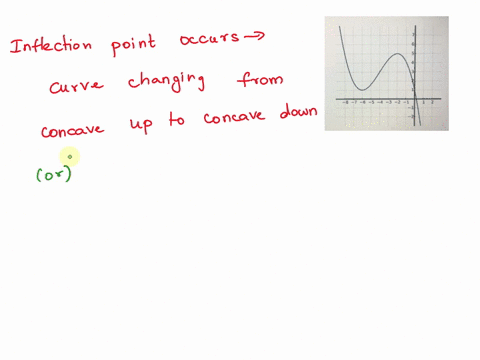 Inflection point occurs →
curve changing from
concave up to concave down
(or)